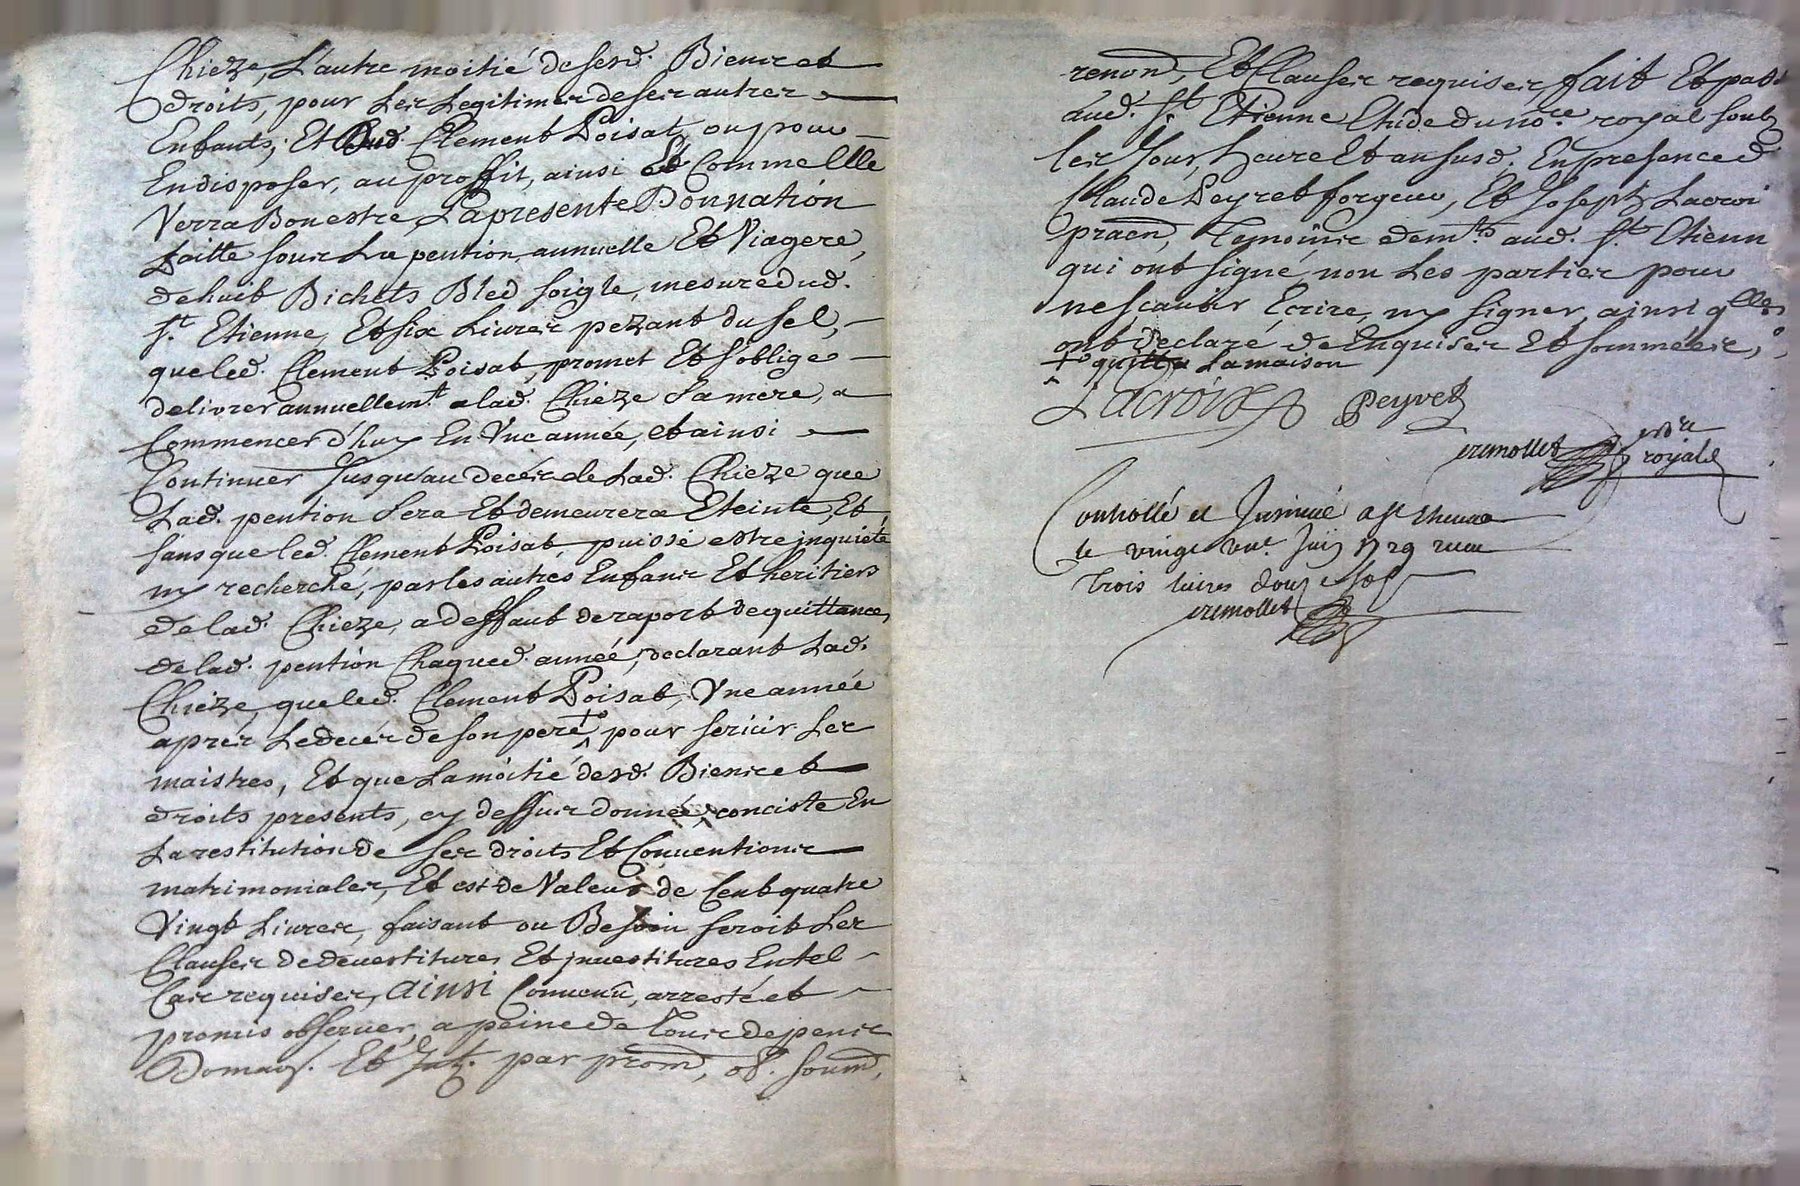 Chieze, L'autre moitié de sesd. Biens et
droits, pour Les Legitimes de ses autres
Enfants, Et Aud. Clement Poisat, ou pour
En disposer, au proffit, ainsi Et Comme Elle
Verra Bon estre, La presente Donnation
faitte sous La pention annuelle Et Viagere,
de huit Bichets Bled soigle, mesure dud.
St. Etienne, Et six Livres pezant du sel,
que led. Clement Poisat, promet Et s'oblige
delivrer annuellemt. a lad. Chieze sa mere, a
Commencer d'huy En Vne année, et ainsi
Continuer Jusqu'au decés de Lad. Chieze que
Lad. pention sera Et demeurera Eteinte, Et
sans que led. Clement Poisat, puisse estre jnquiété
ny recherché, par les autres Enfans Et heritiers
de lad. Chieze, a deffaut de raport de quittances
de lad. pention Chaqued. année, declarant Lad.
Chieze, que led. Clement Poisat, Vne année
aprés Le decés de son pere + pour servir Les
maistres, Et que La moitié desd. Biens et
droits presents, cy dessus donnée, conciste En
La restitution de ses droits Et Conventions
matrimoniales, Et est de Valeur de Cent quatre
Vingt Livres, faisant ou Besoin seroit Les
Clauses de devestitures Et jnvestitures En tel
Cas requises, ainsi Convenu, arresté et
promis observer, a peine de Tous depens
Domag. Et Jnt. par prom, ob. soum,
renon, Et Clauses requises, fait Et passé
aud. St. Etienne Etude du nore. royal soubz
les Jour, heure Et an susd. En presence de
Claude Peyret forgeur, Et Joseph Lacroi
praen, Temoins demts. aud. St. Etienn
qui ont signé, non Les parties pour
ne scavoir Ecrire, ny signer, ainsi qlles
ont declaré de Enquises Et sommées,
+ quitta La maison
Lacroix Peyret
royal
Controllé et Jnsinué a St Etienne
le vingt Juin 1729 receu
Trois livres